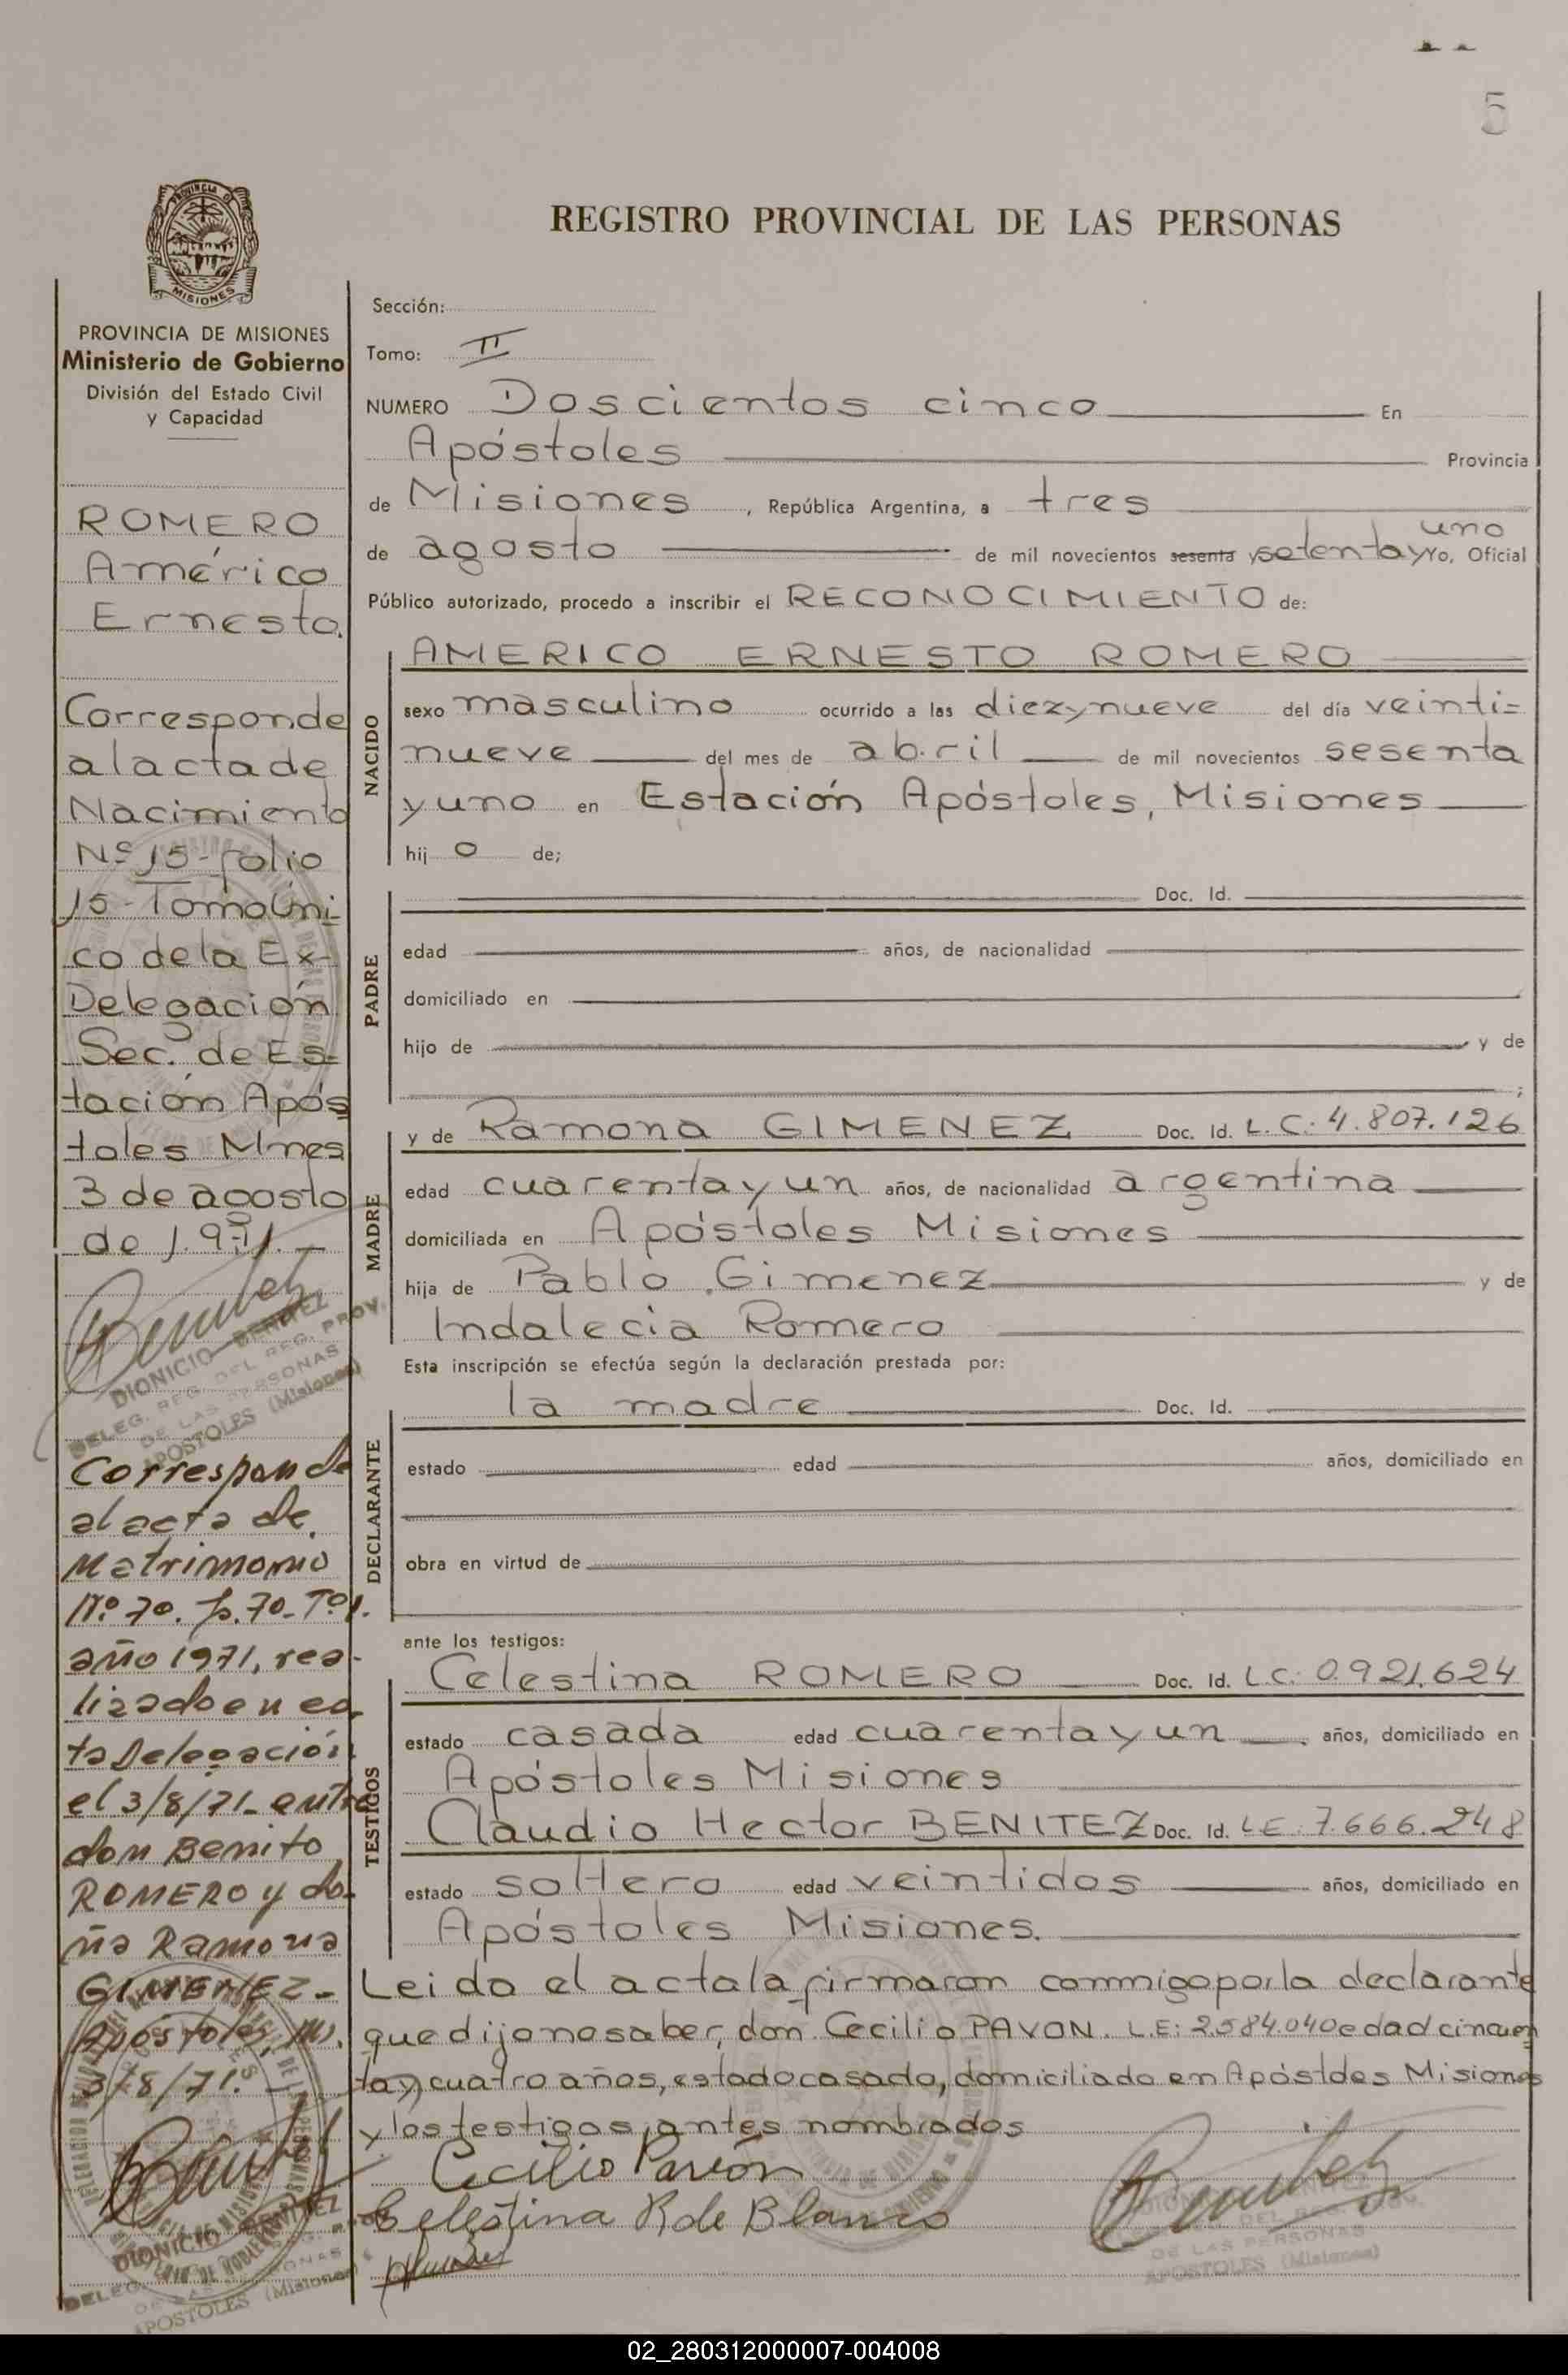 5
REGISTRO PROVINCIAL DE LAS PERSONAS
PROVINCIA DE
MISIONES
PROVINCIA DE MISIONES
Ministerio de Gobierno
División del Estado Civil
y Capacidad
ROMERO
Américo
Ernesto.
Corresponde
al acta de
Nacimiento
Nº 15 - folio
15 - Tomo Úni-
co de la Ex-
Delegación
Sec. de Es-
tación Após
toles Mnes
3 de agosto
de 1.971.-
DIONICIO BENITEZ
DELEG. REG. DEL REG. PROV.
DE LAS PERSONAS
APOSTOLES (Misiones)
Corresponde
al acta de
Matrimonio
Nº 70. fo. 70- Tº 1.
año 1971, rea-
lizado en es-
ta Delegación
el 3/8/71- entre
don Benito
ROMERO y do-
ña Ramona
GIMENEZ-
Apóstoles, Ms.
3/8/71.-
DIONICIO BENITEZ
DELEG.
APOSTOLES (Misiones)
Sección:
Tomo: II
NUMERO Doscientos cinco En
Apóstoles Provincia
de Misiones, República Argentina, a tres
uno
de agosto de mil novecientos sesenta y setenta y Yo, Oficial
Público autorizado, procedo a inscribir el RECONOCIMIENTO de:
NACIDO
AMERICO ERNESTO ROMERO
sexo masculino ocurrido a las diez y nueve del día veinti-
nueve del mes de abril de mil novecientos sesenta
y uno en Estación Apóstoles, Misiones
hij o de;
PADRE
Doc. Id.
edad años, de nacionalidad
domiciliado en
hijo de y de
;
MADRE
y de Ramona GIMENEZ Doc. Id. L.C: 4.807.126
edad cuarenta y un años, de nacionalidad argentina
domiciliada en Apóstoles Misiones
hija de Pablo Gimenez y de
Indalecia Romero
Esta inscripción se efectúa según la declaración prestada por:
DECLARANTE
la madre Doc. Id.
estado edad años, domiciliado en
obra en virtud de
ante los testigos:
TESTIGOS
Celestina ROMERO Doc. Id. L.C: 0.921.624
estado casada edad cuarenta y un años, domiciliado en
Apóstoles Misiones
Claudio Hector BENITEZ Doc. Id. L.E: 7.666.248
estado soltero edad veintidos años, domiciliado en
Apóstoles Misiones.
Leido el acta la firmaron conmigo por la declarante
que dijo no saber, don Cecilio PAVON. L.E: 2.584.040 edad cincuen
ta y cuatro años, estado casado, domiciliado en Apóstoles Misiones
y los testigos antes nombrados
Cecilio Pavón
Celestina R de Blanco
DE LAS PERSONAS
APOSTOLES (Misiones)
02_280312000007-004008